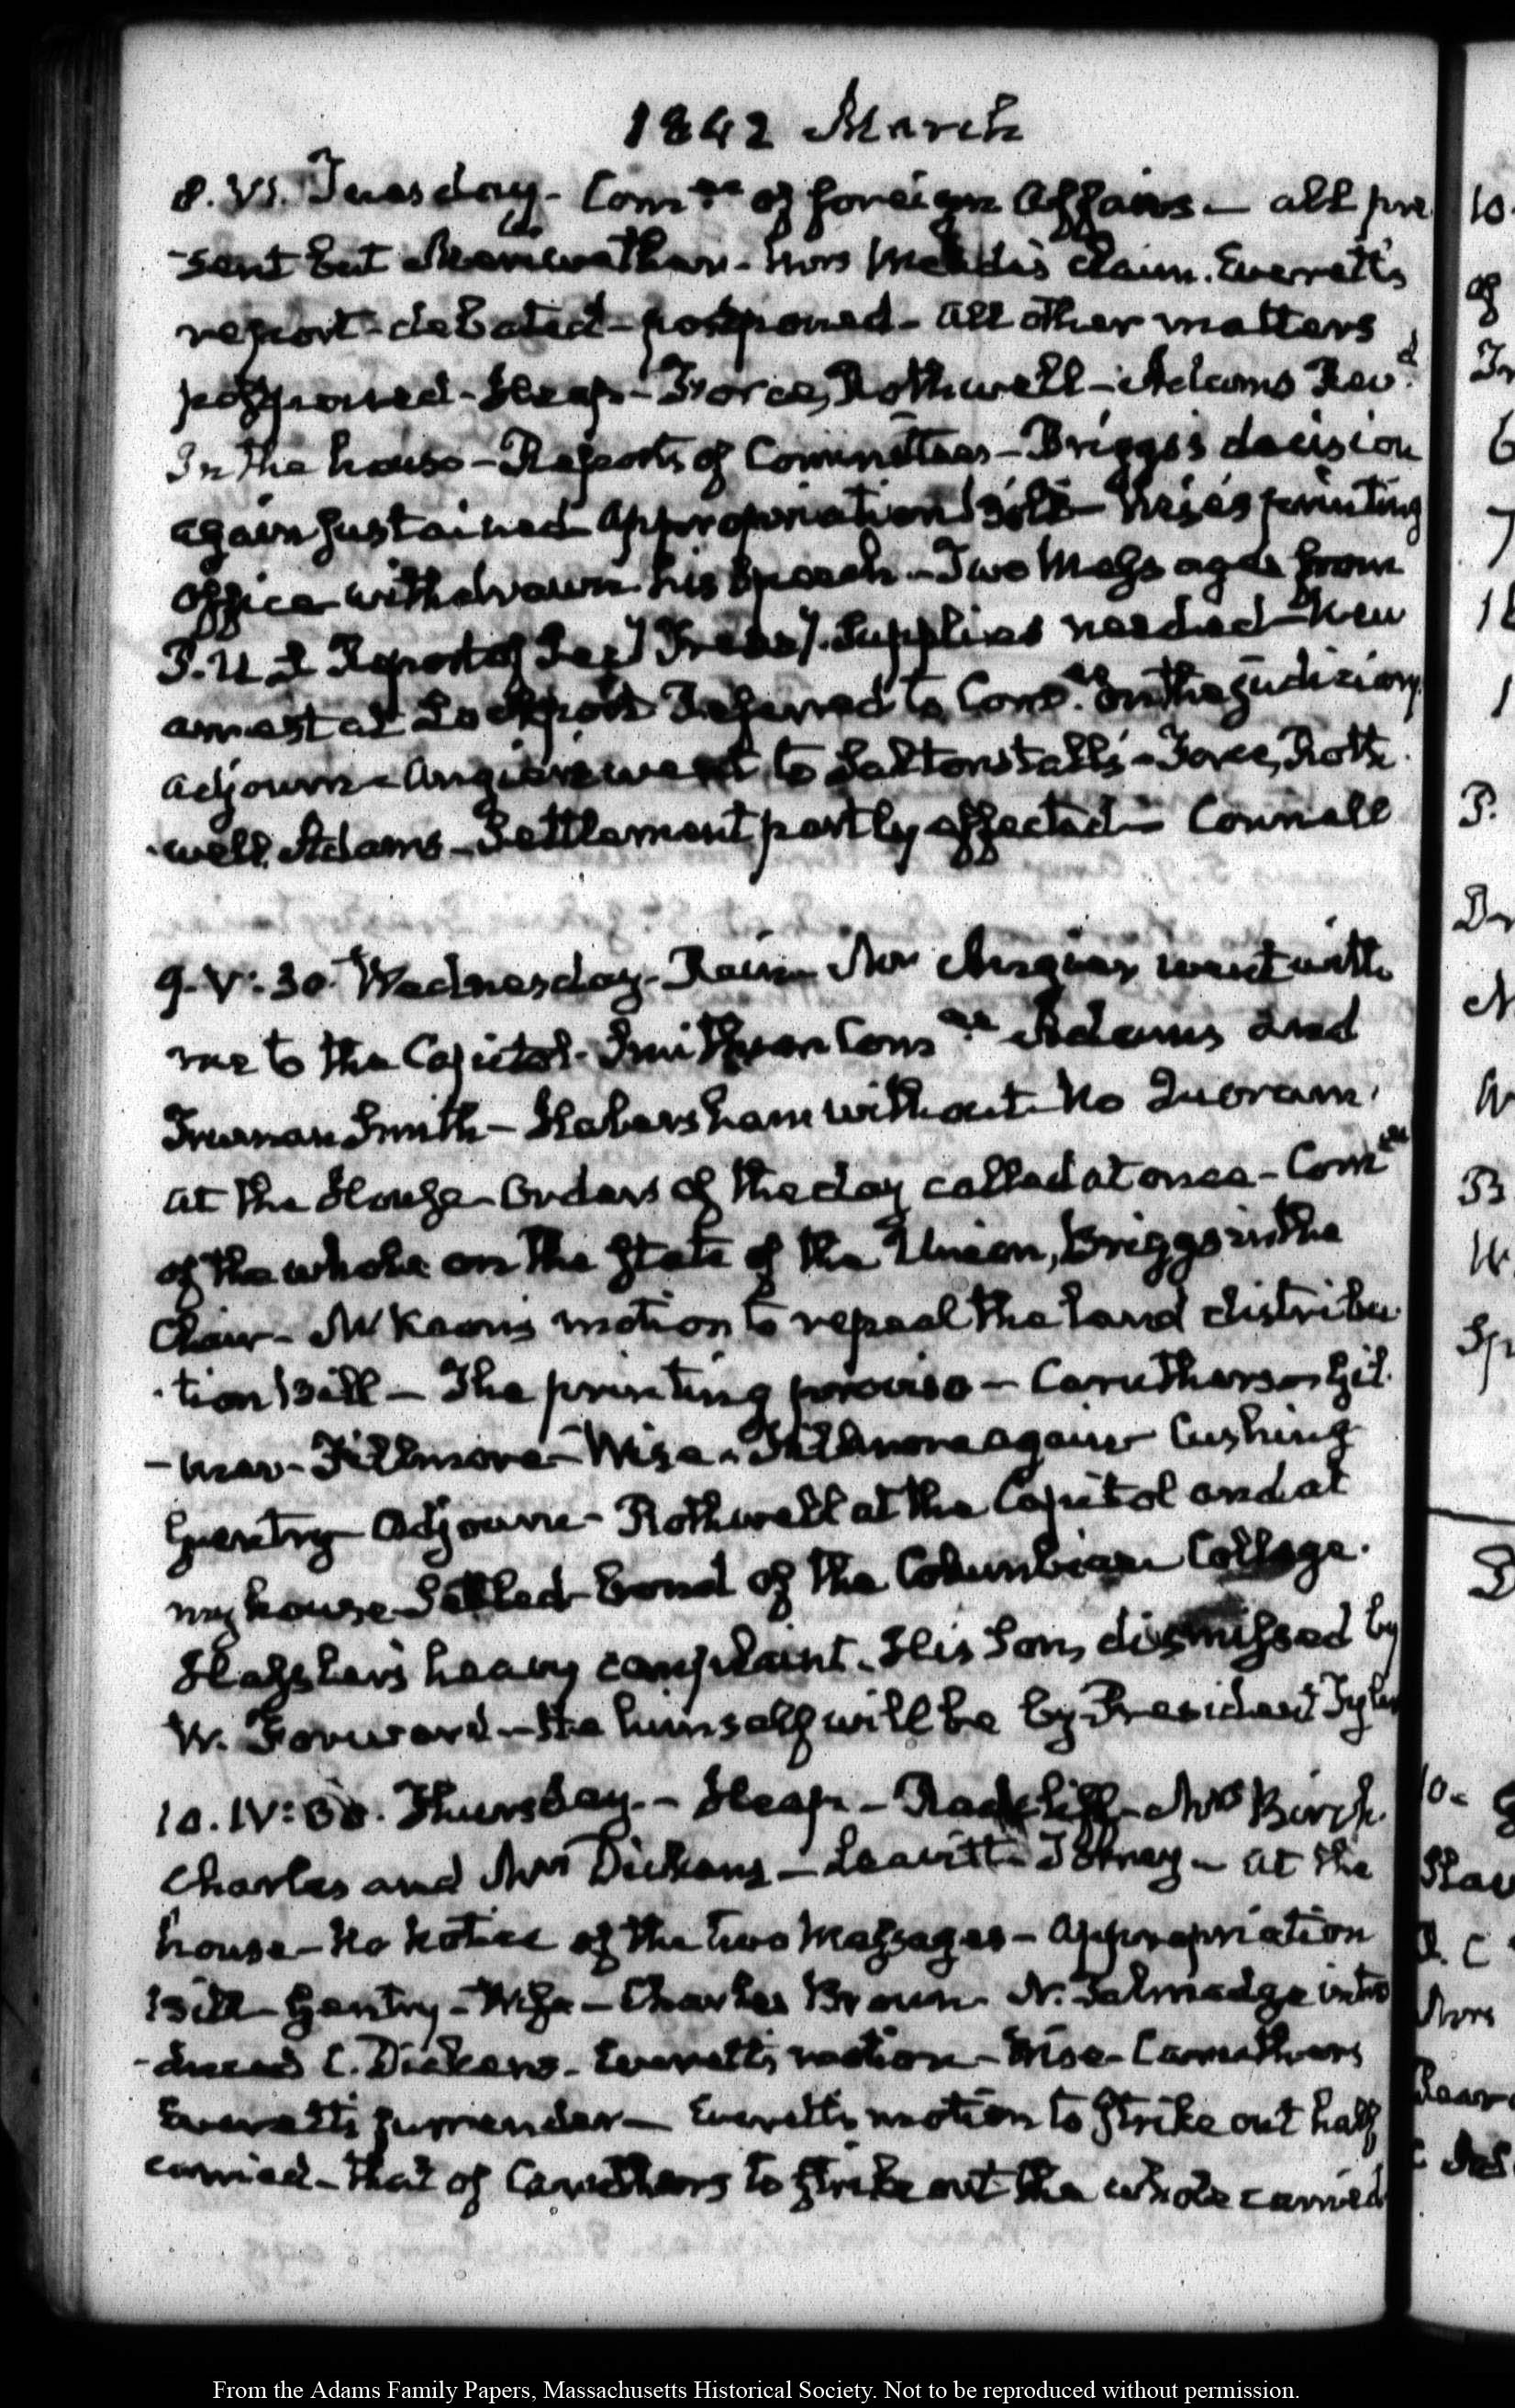 1842 March
8. VI. Tuesday - Comee. of foreign Affairs - all pre
-sent but Meriwether - claim. Everett's
report - debated - postponed - all other matters
postponed - Heap - Force, Rothwell - Adams Revd.
In the house - Reports of Committees - Briggs's decision
again sustained Appropriation Bill - Wise's printing
office withdrawn his Speech - Two Messages from
P. U S Report of Secy Treasy. Supplies needed - New
arrest at Lockport Referred to Comee. on the judiciary
adjourn - Angier went to Saltonstall's - Force, Roth
-well, Adams - Settlement partly effected - Connell
9. V: 30. Wednesday - Rain - Mr Angier went with
me to the Capitol - Smithson Comee. Adams and
Truman Smith - Habersham without - No Quorum.
at the House - Orders of the day called at once - Comee
of the whole on the State of the Union, Briggs in the
Chair - McKeon's motion to repeal the land distribu
-tion Bill - The printing proviso - Caruthers - Gil
-mer - Fillmore - Wise - Fillmore again - Cushing
Gentry - Adjourn - Rothwell at the Capitol and at
my house - Settled bond of the Columbian College.
Hassler's heavy complaint. His Son, dismissed by
W. Forward - He himself will be by President Tyler
10. IV: 30. Thursday - Heap - Radcliff - Mrs Birch
Charles and Mrs Dickens - Leavitt - Torrey - at the
house - No notice of the two Messages - Appropriation
Bill - Gentry - Wise - Charles Brown - N. Talmadge intro
-duced C. Dickens - Everett's motion - Wise - Caruthers
Everett's surrender - Everett's motion to strike out half
carried - that of Caruthers to strike out the whole carried
From the Adams Family Papers, Massachusetts Historical Society. Not to be reproduced without permission.